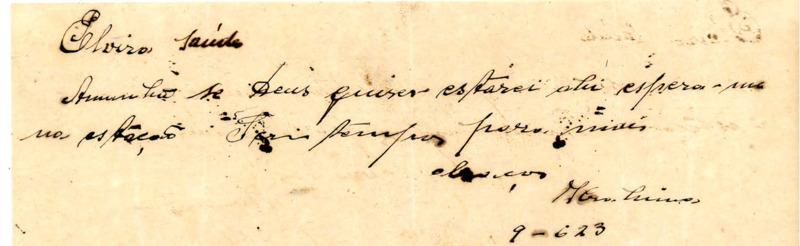 Elvira Saúde
Amanhã se Deus quizer estarei ahi espera-me
na estação tempo para mais
abraços
9-623